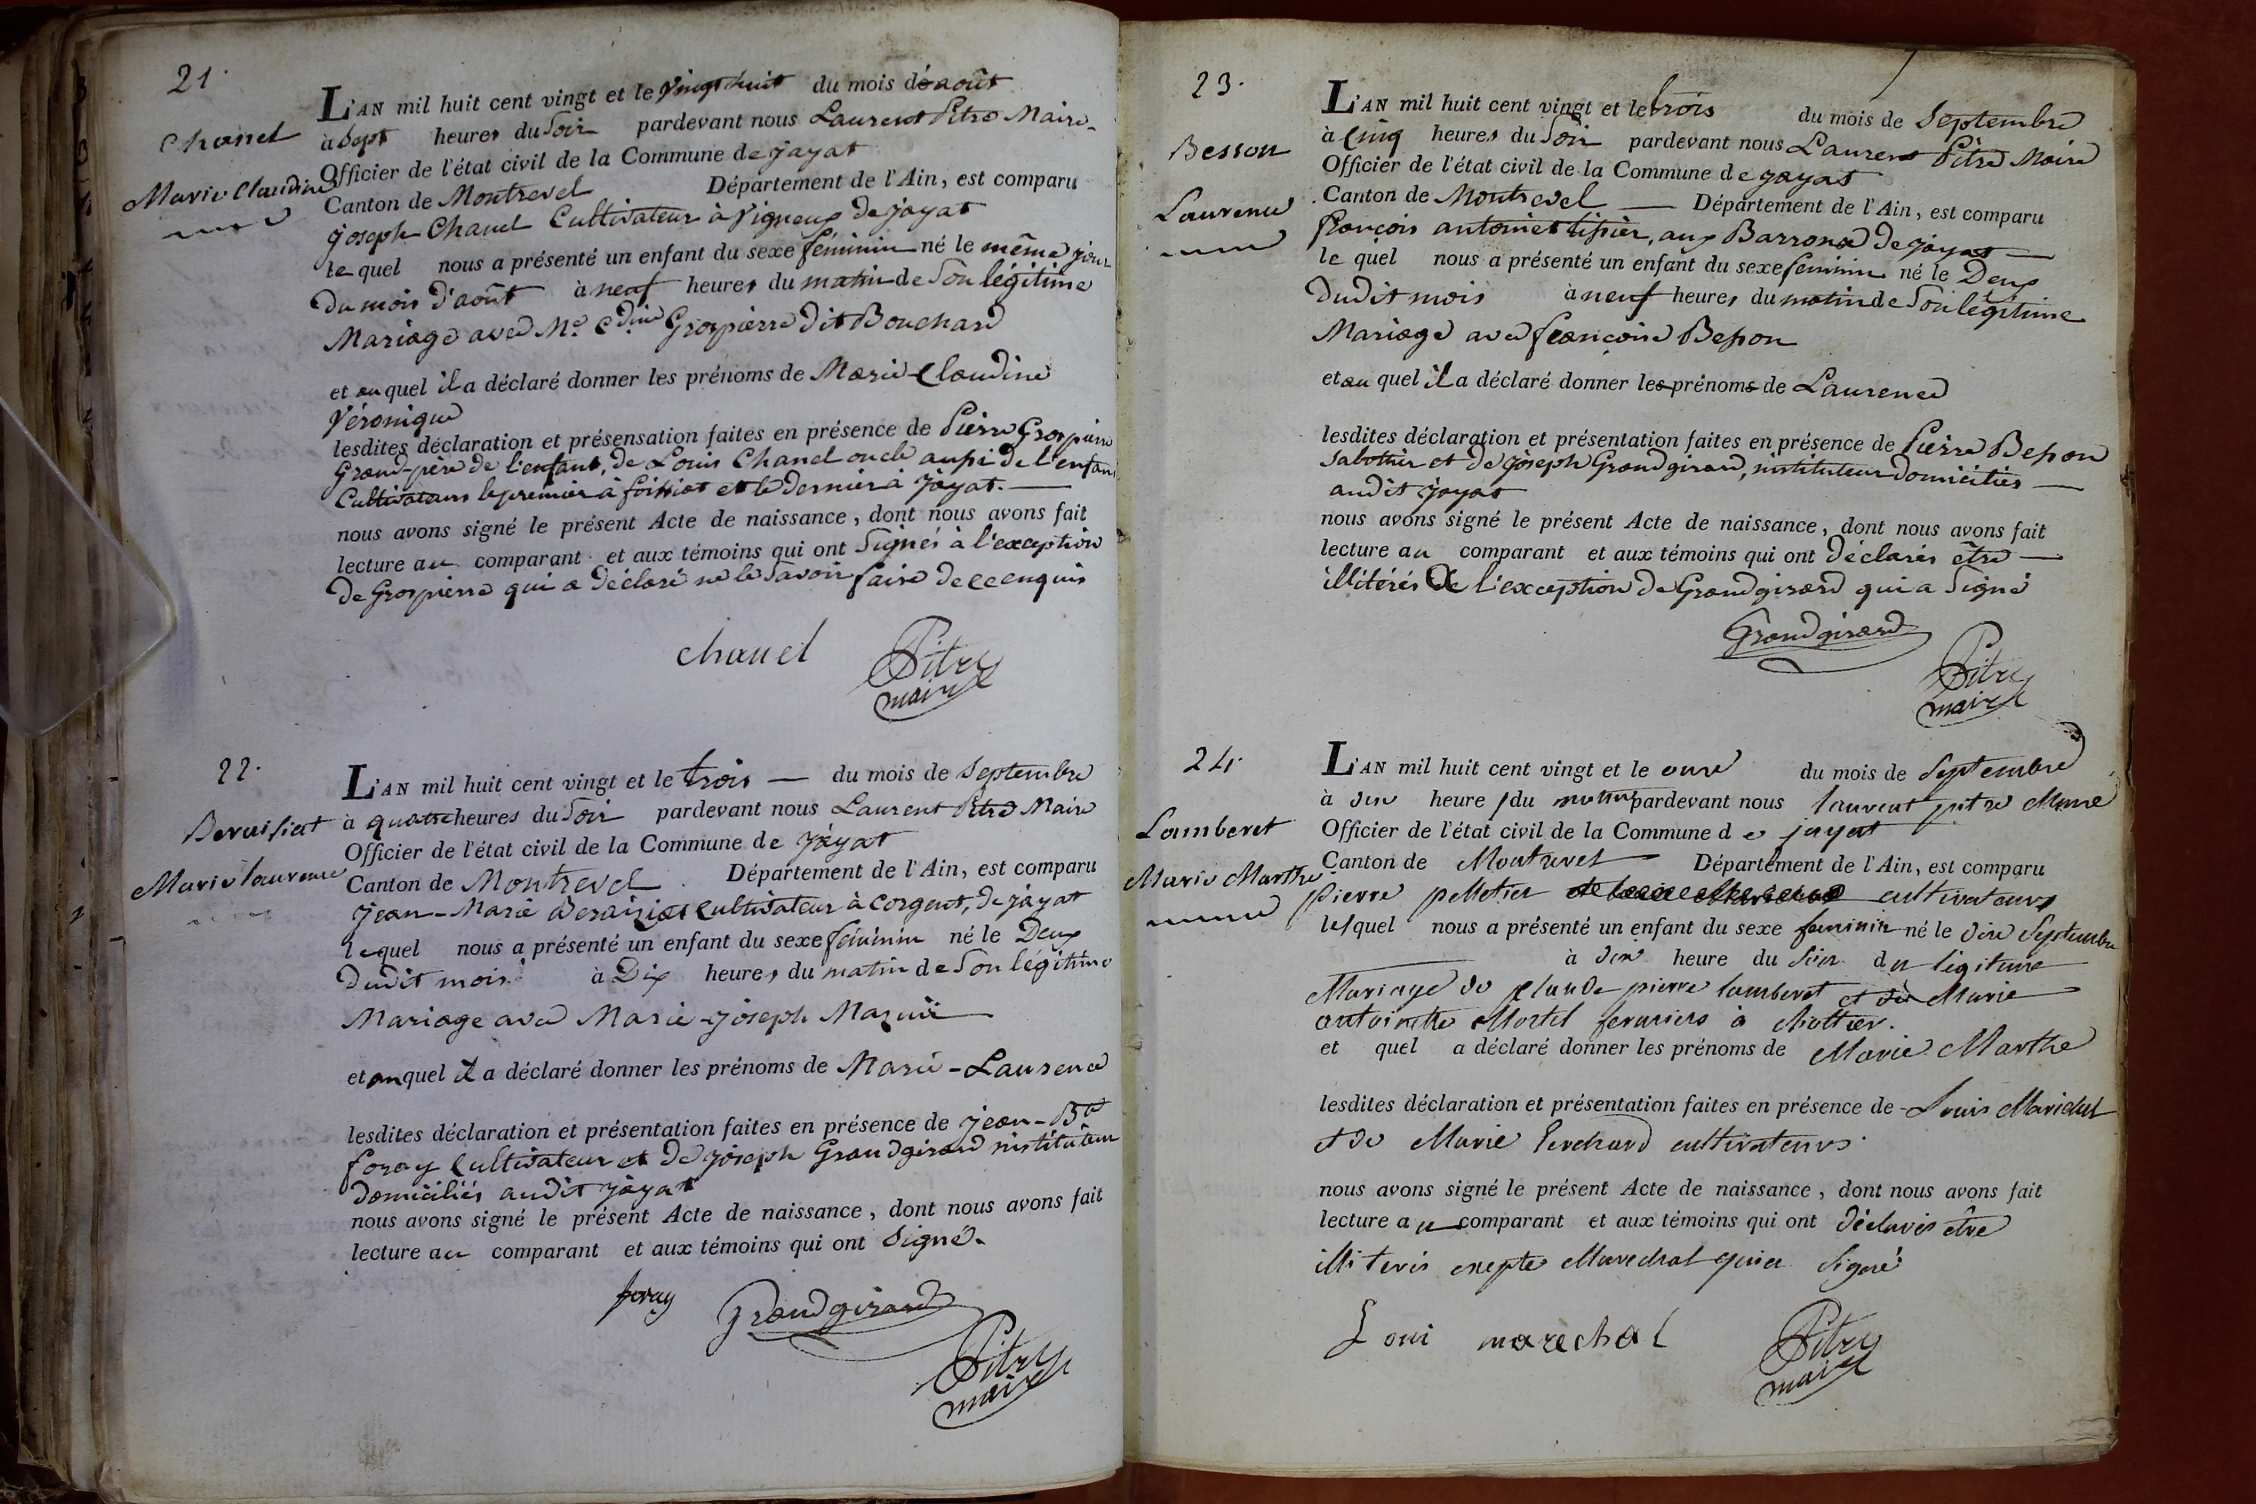 21.
Chanel
Marie Claudine
L'AN mil huit cent vingt et le Vingt huit du mois d'août
à Sept heures du Soir pardevant nous Laurent Pitre Maire
Officier de l'état civil de la Commune de jayat
Canton de Montrevel Département de l'Ain, est comparu
joseph Chanel Cultivateur à Vigneux de jayat
le quel nous a présenté un enfant du sexe féminin né le même jour
Du mois d'août à neuf heures du matin de Son légitime
Mariage avec Mie Cdine Grospierre dit Bouchard
et au quel il a déclaré donner les prénoms de Marie-Claudine
Véronique
lesdites déclaration et présensation faites en présence de Pierre Grospierre
Grand-père de l'enfant, de Louis Chanel oncle aussi de l'enfant
Cultivateurs le premier à foissiat et le dernier à jayat.
nous avons signé le présent Acte de naissance, dont nous avons fait
lecture au comparant et aux témoins qui ont Signés à l'exception
de Grospierre qui a déclaré ne le Savoir faire de ce enquis
chanel
Pitre
maire
22.
Beraisiat
Marie laurence
L'AN mil huit cent vingt et le trois du mois de Septembre
à quatre heures du Soir pardevant nous Laurent Pitre Maire
Officier de l'état civil de la Commune de jayat
Canton de Montrevel Département de l'Ain, est comparu
jean-Marie Beraiziat Cultivateur à Corgent, de jayat
lequel nous a présenté un enfant du sexe féminin né le Deux
dudit mois à Dix heures du matin de Son légitime
Mariage avec Marie-joseph
et au quel il a déclaré donner les prénoms de Marie-Laurence
lesdites déclaration et présentation faites en présence de jean-Bte
foray Cultivateur et de joseph Grandgirard instituteur
domiciliés audit jayat
nous avons signé le présent Acte de naissance, dont nous avons fait
lecture au comparant et aux témoins qui ont Signé.
foray
Grandgirard
Pitre
maire
23.
Besson
Laurence
L'AN mil huit cent vingt et le trois du mois de Septembre
à Cinq heures du Soir pardevant nous Laurent Pitre Maire
Officier de l'état civil de la Commune de jayat
Canton de Montrevel Département de l'Ain, est comparu
françois antoine tissier, aux Barrons de jayat
le quel nous a présenté un enfant du sexe feminin né le Deux
Dudit mois à neuf heures du matin de Son légitime
Mariage avec françoise Besson
et au quel il a déclaré donner les prénoms de Laurence
lesdites déclaration et présentation faites en présence de Pierre Besson
Sabottier et de joseph Grandgirard, instituteur domiciliés
audit jayat
nous avons signé le présent Acte de naissance, dont nous avons fait
lecture au comparant et aux témoins qui ont déclarés être
illitérés à l'exception de Grandgirard qui a Signé
Grandgirard
Pitre
maire
24.
Lamberet
Marie Marthe
L'AN mil huit cent vingt et le onze du mois de Septembre
à dix heure du matin pardevant nous laurent pitre Maire
Officier de l'état civil de la Commune de jayat
Canton de Montrevel Département de l'Ain, est comparu
pierre pelletier cultivateurs
lesquel nous a présenté un enfant du sexe feminin né le dix Septembre
à dix heure du Soir du légitime
Mariage de Claude pierre lamberet et de Marie
antoinette Mortel fermiers à
et quel a déclaré donner les prénoms de Marie Marthe
lesdites déclaration et présentation faites en présence de Louis Marechal
et de Marie Perchard cultivateurs
nous avons signé le présent Acte de naissance, dont nous avons fait
lecture au comparant et aux témoins qui ont déclarés être
illiterés exepte Marechal qui a Signé
Loui marechal
Pitre
maire